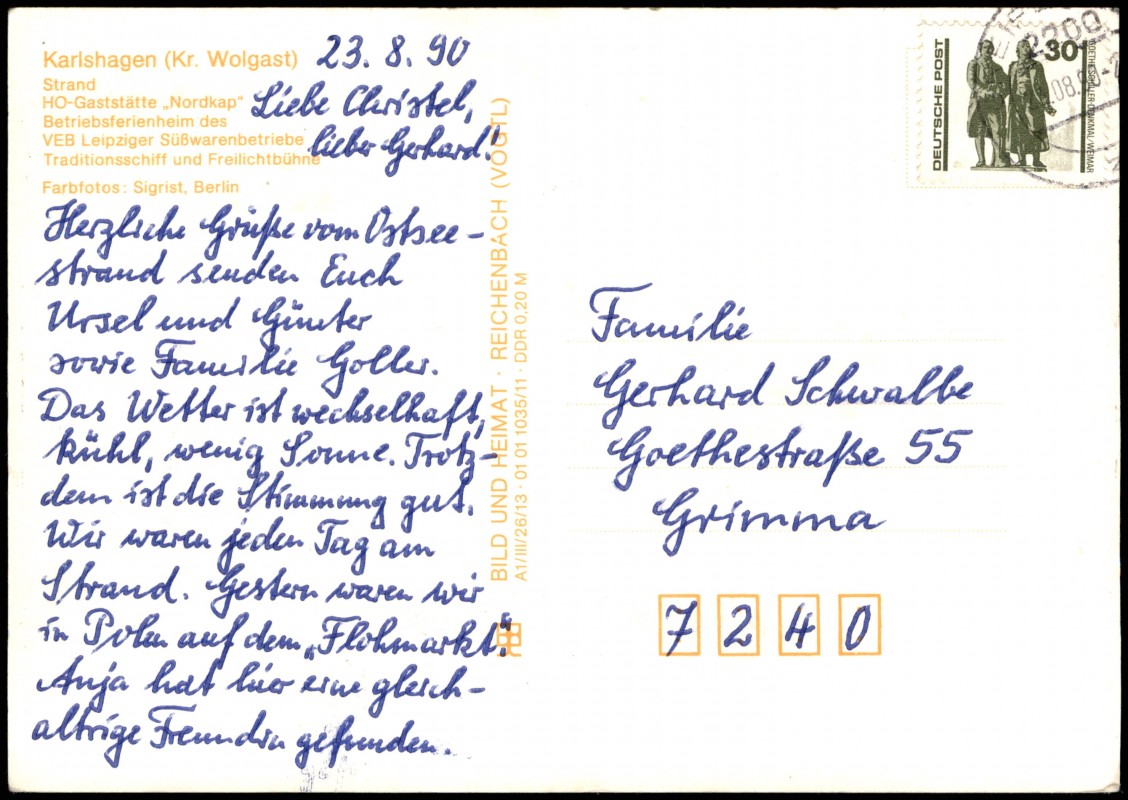 Karlshagen (Kr. Wolgast)
Strand
HO-Gaststätte „Nordkap"
Betriebsferienheim des
VEB Leipziger Süßwarenbetriebe
Traditionsschiff und Freilichtbühne
Farbfotos: Sigrist, Berlin
23. 8. 90
Liebe Christel,
lieber Gerhard!
Herzliche Grüße vom Ostsee-
strand senden Euch
Ursel und Günter
sowie Familie Goller.
Das Wetter ist wechselhaft,
kühl, wenig Sonne. Trotz-
dem ist die Stimmung gut.
Wir waren jeden Tag am
Strand. Gestern waren wir
in Polen auf dem „Flohmarkt".
Anja hat hier eine gleich-
altrige Freundin gefunden.
BILD UND HEIMAT · REICHENBACH (VOGTL)
A1/III/26/13 · 01 01 1035/11 · DDR 0,20 M
DEUTSCHE POST
30
GOETHE-SCHILLER-DENKMAL/WEIMAR
2200
Familie
Gerhard Schwalbe
Goethestraße 55
Grimma
7240